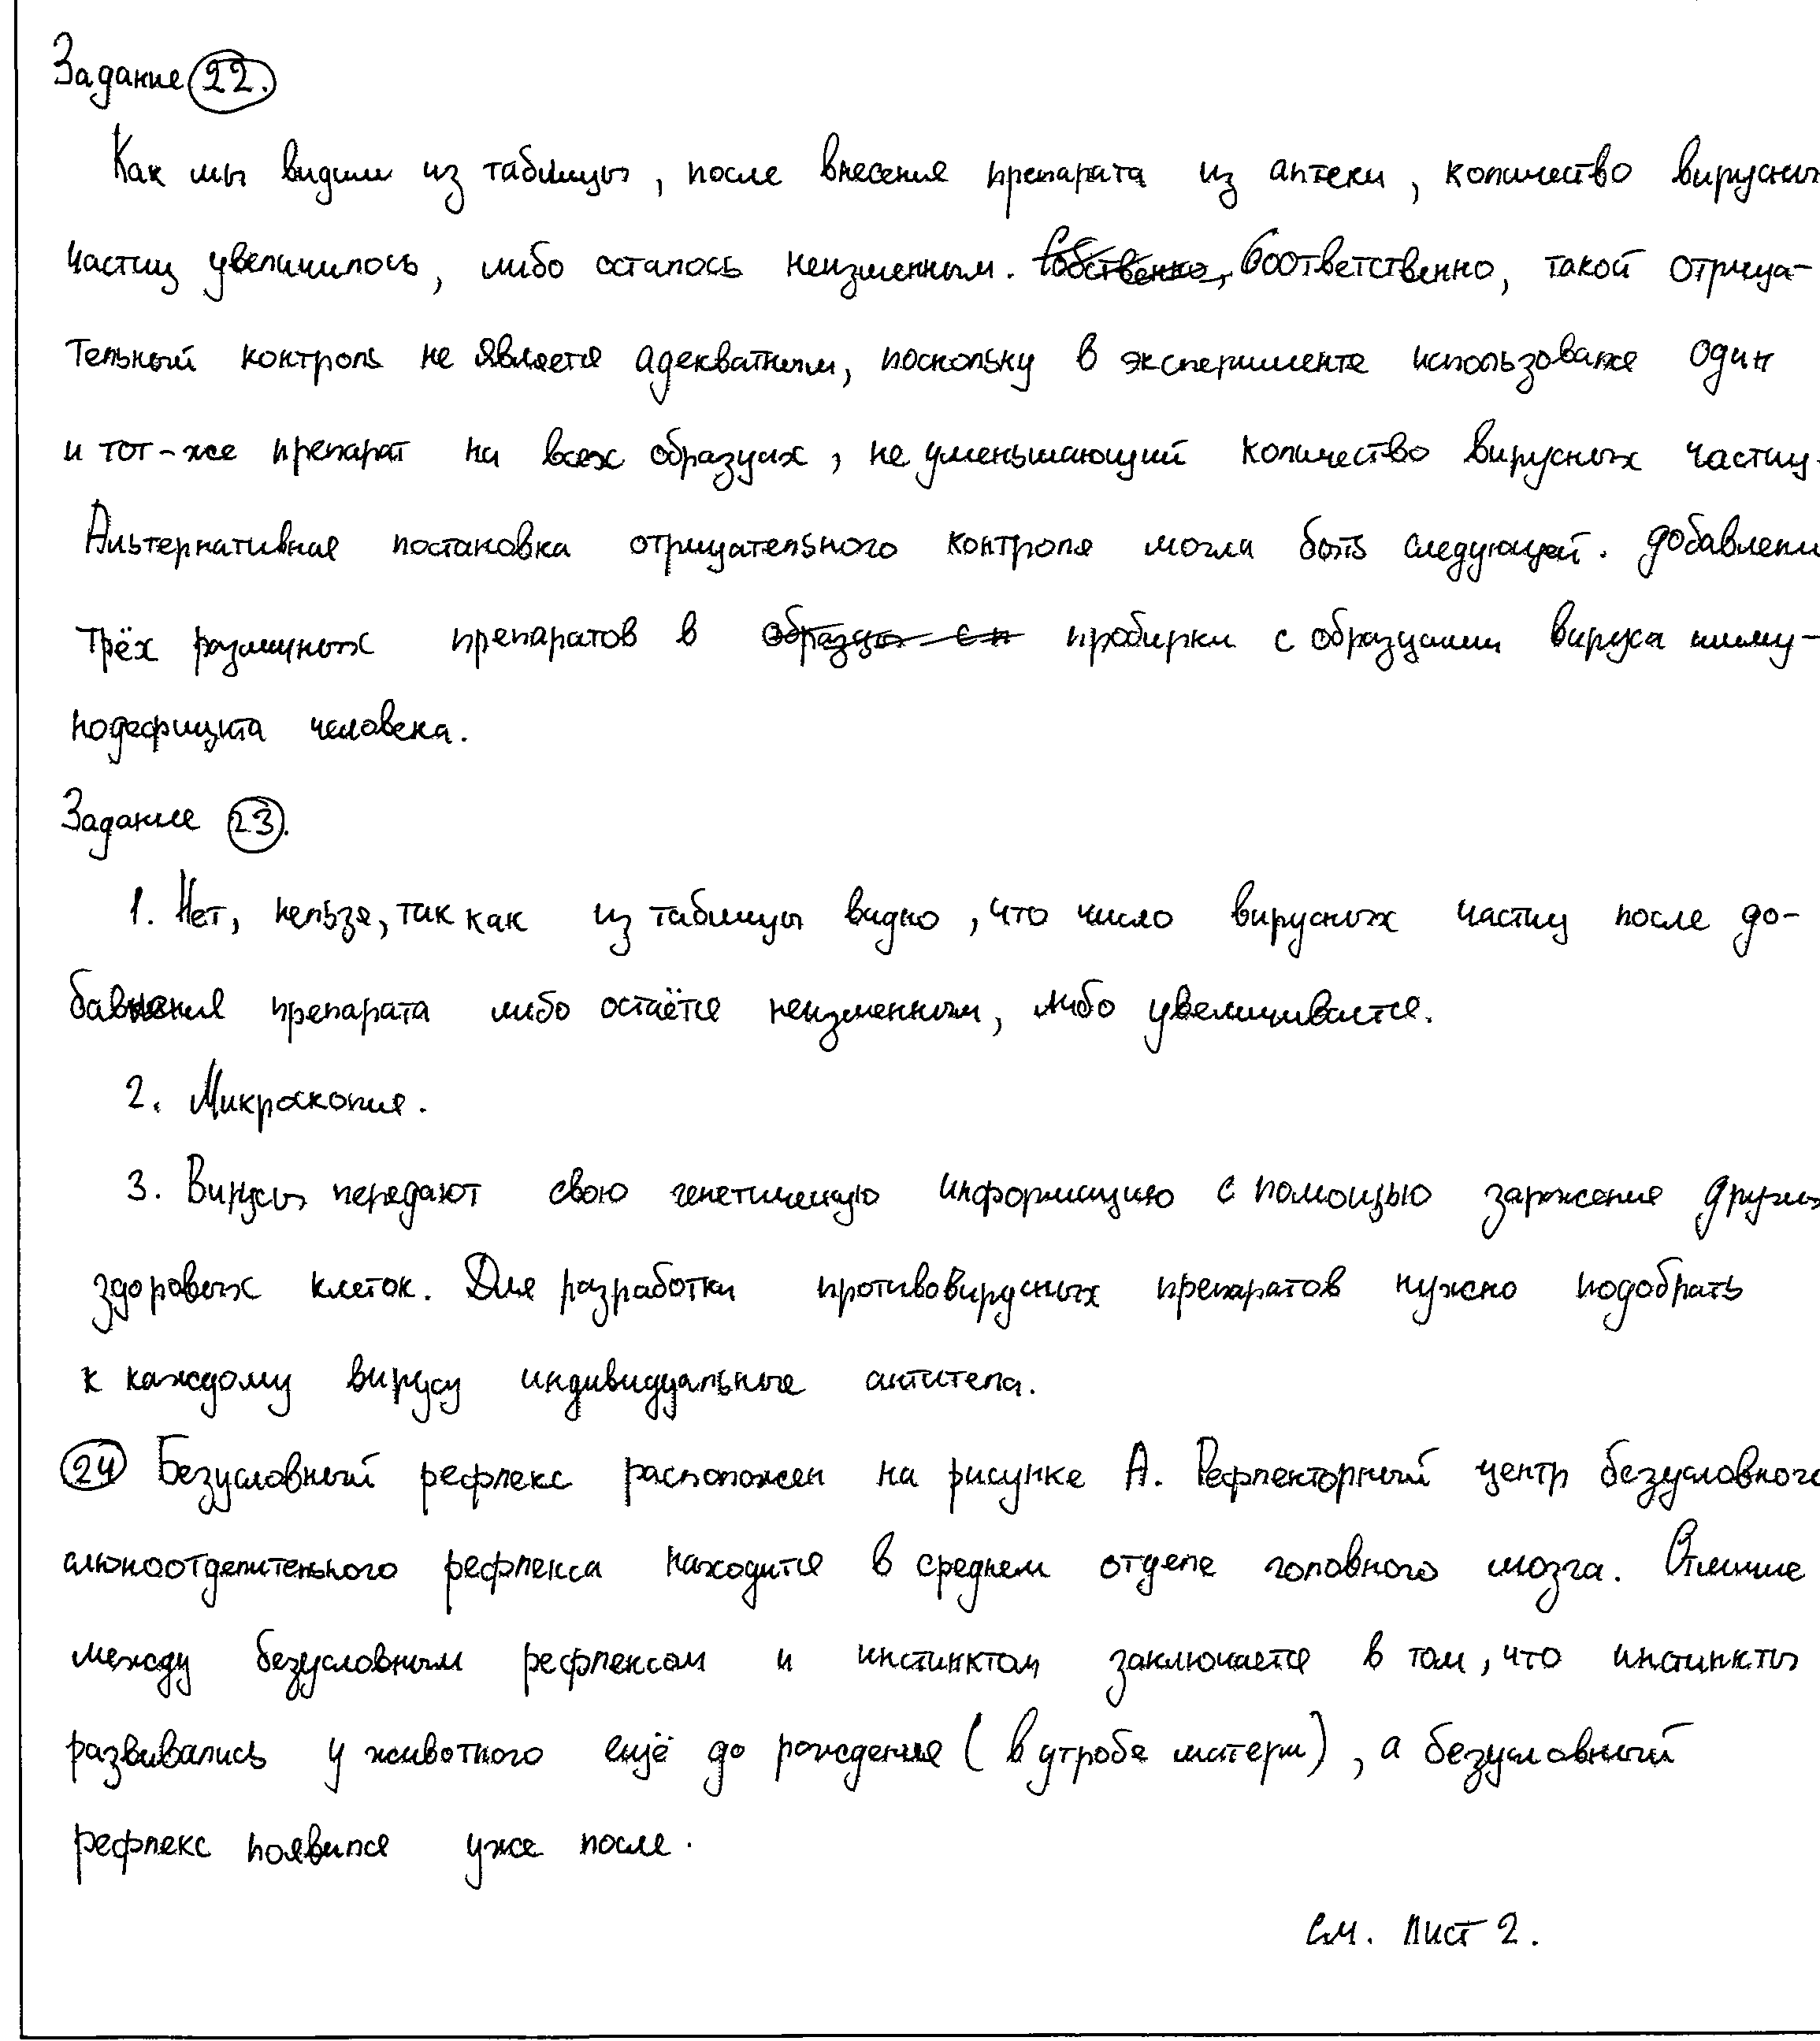 Задание 22.
Как мы видим из таблицы, после внесения препарата из аптеки, количество вирусных
частиц увеличилось, либо осталось неизменным. Собственно, Соответственно, такой отрица-
тельный контроль не является адекватным, поскольку в эксперименте использовался один
и тот-же препарат на всех образцах, не уменьшающий количество вирусных частиц.
Альтернативная постановка отрицательного контроля могла быть следующей. добавлени
трёх различных препаратов в образцы с п пробирки с образцами вируса имму-
нодефицита человека.
Задание 23.
1. Нет, нельзя, так как из таблицы видно, что число вирусных частиц после до-
бавления препарата либо остаётся неизменным, либо увеличивается.
2. Микроскопия.
3. Вирусы передают свою генетическую информацию с помощью заражения других
здоровых клеток. Для разработки противовирусных препаратов нужно подобрать
к каждому вирусу индивидуальные антитела.
24 Безусловный рефлекс расположен на рисунке А. Рефлекторный центр безусловного
слюноотделительного рефлекса находится в среднем отделе головного мозга. Отличие
между безусловным рефлексом и инстинктом заключается в том, что инстинкты
развивались у животного ещё до рождения (в утробе матери), а безусловный
рефлекс появился уже после.
см. Лист 2.